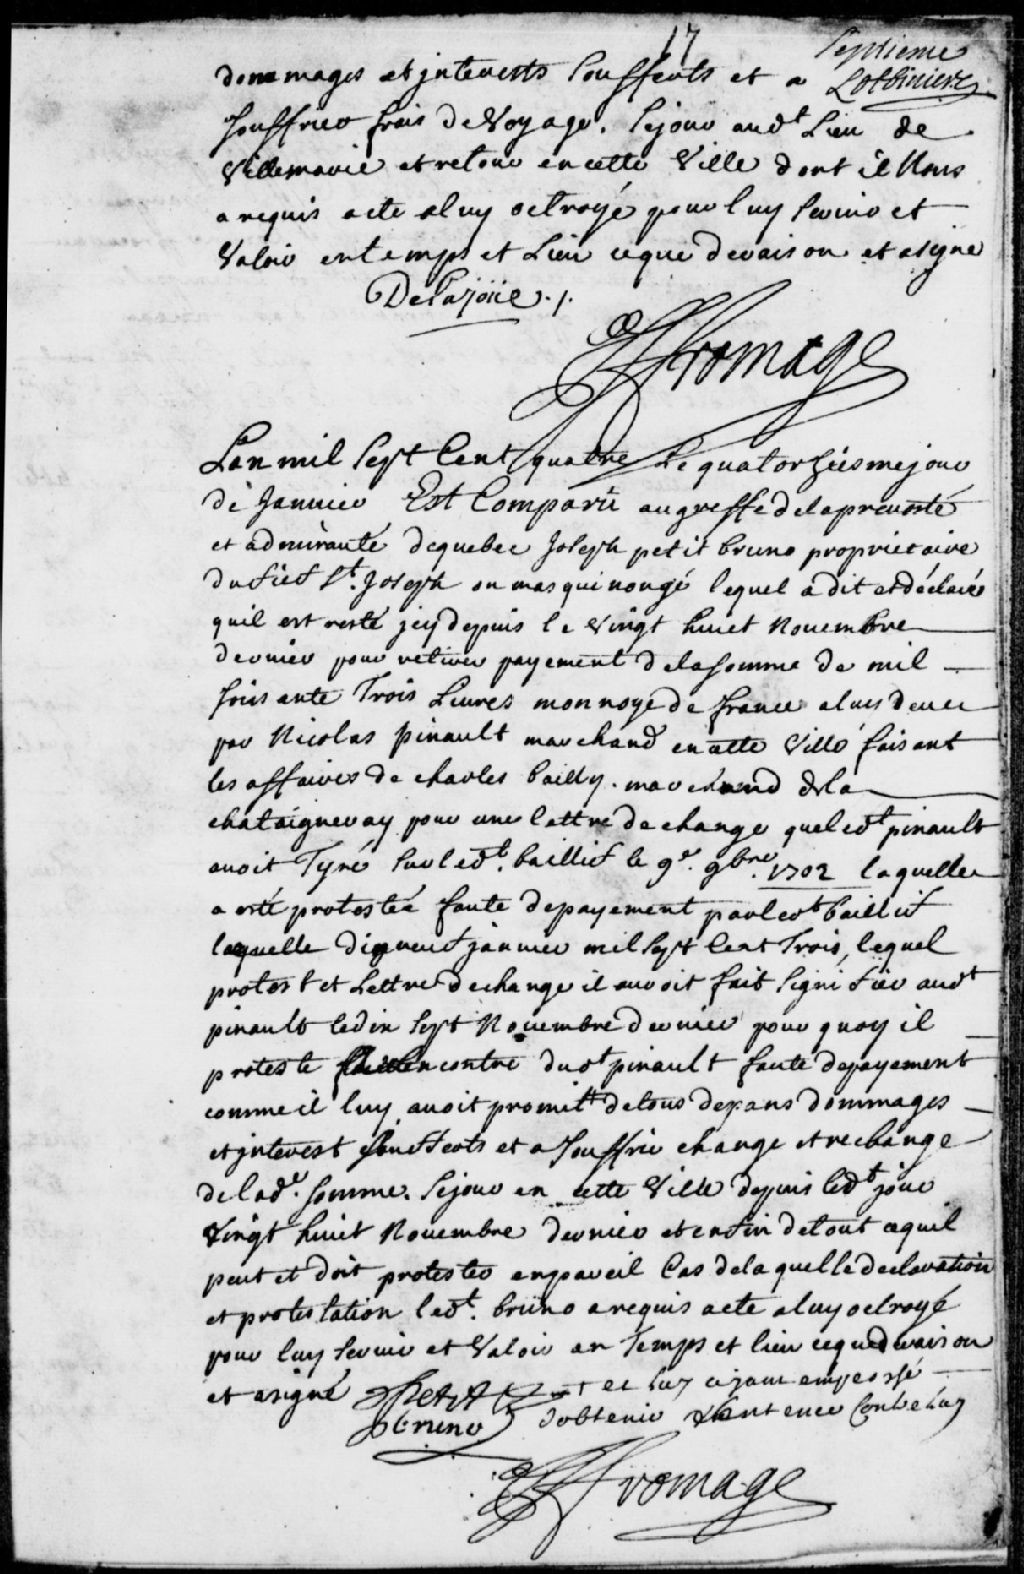 17
Septieme
Lotbiniere
dommages et jnterests soufferts et a
souffrir frais de Voyage. sejour aud.t Lieu de
Villemarie et retour en cette Ville dont il Nous
a requis acte aluy octroyé pour luy servir et
Valoir entemps et Lieu ceque deraison et asigné
Delajoüe ./.
Fromage
Lan mil sept Cent quatre Le quatorziesme jour
de Janvier Est Comparu augreffe delaprevosté
et admirauté dequebec Joseph petit bruno proprietaire
du fief S.t Joseph ou masquinongé lequel a dit et déclaré
quil est resté jcy depuis le Vingt huict Novembre
dernier pour retirer payement delasomme de mil
soisante Trois Livres monnoye de france aluy deue
par Nicolas pinault marchand en cette Ville faisant
les affaires de charles bailly. marchand de la
chataigneray pour une lettre de change queled.t pinault
avoit Tyré sur led.t bailliff le 9.e 9bre. 1702 laquelle
a esté protestée faute depayement parled.t bailliff
laquelle dixneuf janvier mil sept Cent Trois, lequel
protest et Lettre dechange il auroit fait signiffier aud.t
pinault ledix sept Novembre dernier pour quoy il
proteste allencontre dud.t pinault faute depayement
comme il luy avoit promis de tous depans dommages
et jnterest soufferts et a souffrir change et rechange
delad.e somme. sejour en cette Ville depuis led.t jour
Vingt huict Novembre dernier et enfin detout cequil
peut et doit protester enpareil Cas delaquelle declaration
et protestation led.t. bruno arequis acte aluy octroyé
pour luy servir et Valoir en Temps et lieu ceque deraison
et asigné et luy ajant empessé
petit
bruno dobtenir sentence Contre luy
Fromage